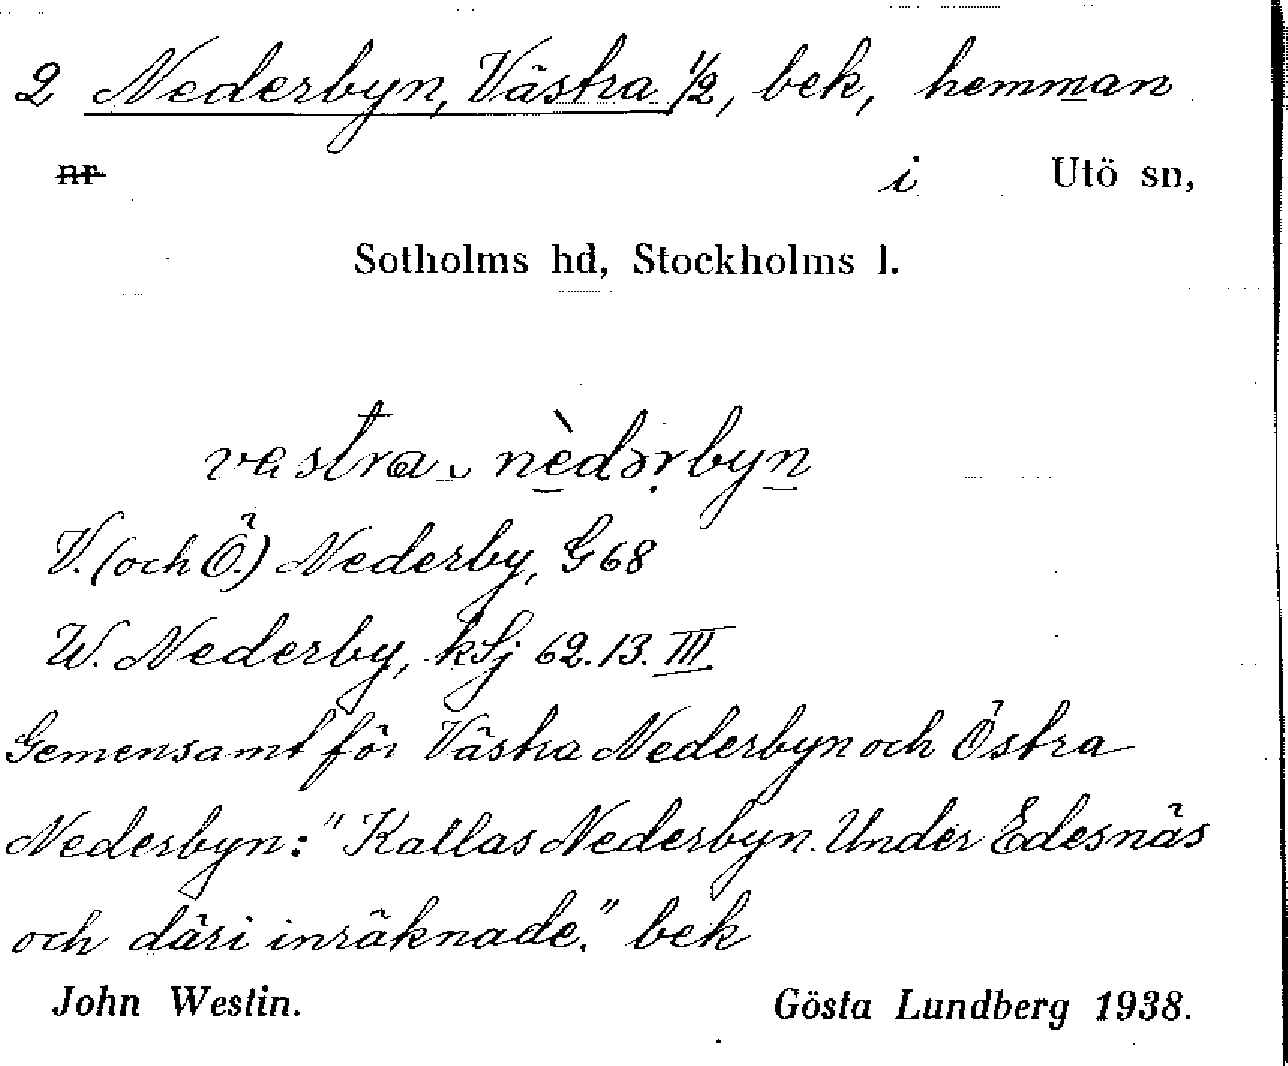 2 Nederbyn, Västra 1/2, bek, hemman
nr i Utö sn,
Sotholms hd, Stockholms l.
vastra nèdərbyn
V. (och Ö.) Nederby, G 68
W. Nederby, kSj 62.13.III
Gemensamt för Västra Nederbyn och Östra
Nederbyn: "Kallas Nederbyn. Under Edesnäs
och däri inräknade." bek
John Westin. Gösta Lundberg 1938.